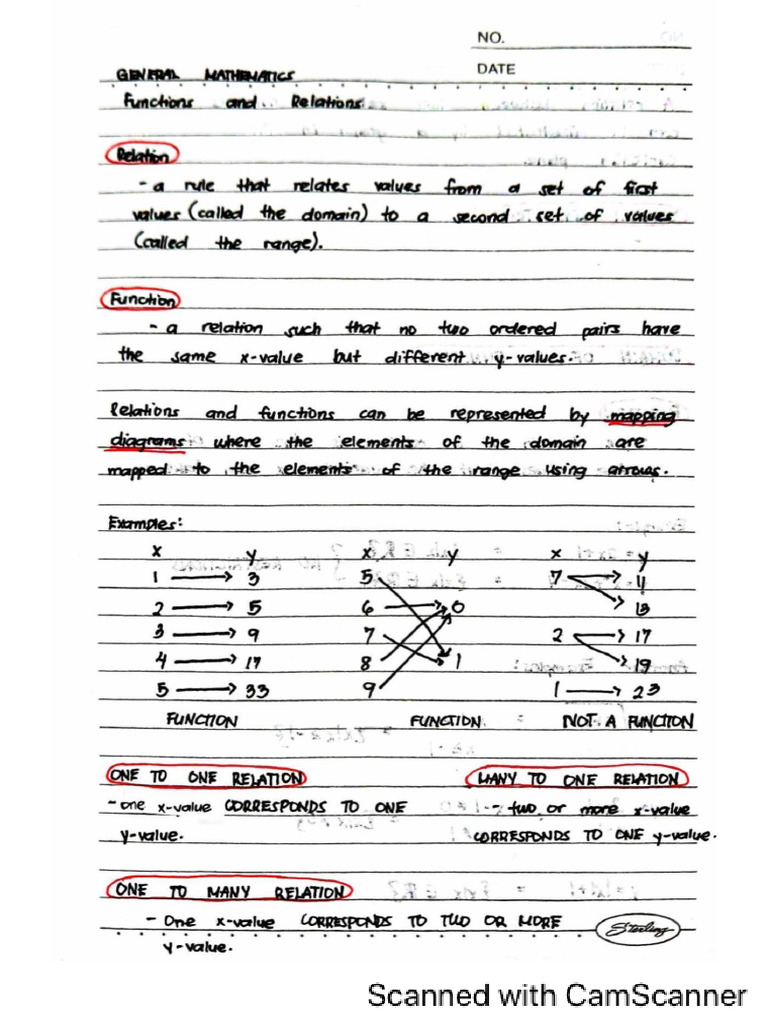 NO.
DATE
GENERAL MATHEMATICS
Functions and Relations
Relation
- a rule that relates values from a set of first
values (called the domain) to a second set of values
(called the range).
Function
- a relation such that no two ordered pairs have
the same x-value but different y-values.
Relations and functions can be represented by mapping
diagrams where the elements of the domain are
mapped to the elements of the range using arrows.
Examples:
x y x y x y
1 → 3 5 7 → 4
2 → 5 6 → 0 13
3 → 9 7 2 → 17
4 → 17 8 1 19
5 → 33 9 1 → 23
FUNCTION FUNCTION NOT A FUNCTION
ONE TO ONE RELATION MANY TO ONE RELATION
- one x-value CORRESPONDS TO ONE - two or more x-value
y-value. CORRESPONDS TO ONE y-value.
ONE TO MANY RELATION
- One x-value CORRESPONDS TO TWO OR MORE
y-value.
Sterling
Scanned with CamScanner